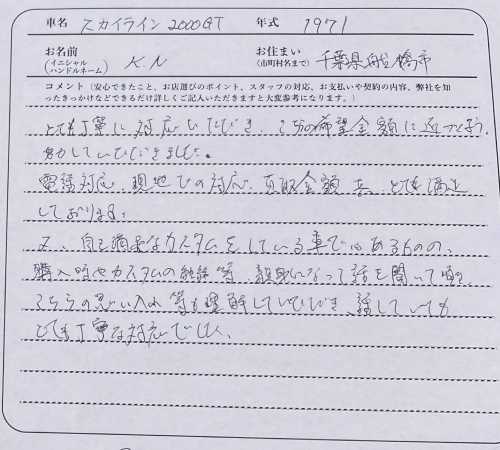 車名 スカイライン2000GT 年式 1971
お名前 (イニシャル ハンドルネーム) K.N お住まい (市町村名まで) 千葉県船橋市
コメント（安心できたこと、お店選びのポイント、スタッフの対応、お支払いや契約の内容、弊社を知
ったきっかけなどできるだけ詳しくご記入いただきますと大変参考になります。）
とても丁寧に対応いただき、こちらの希望金額に近づくよう、
努力していただきました。
電話対応、現地での対応、買取金額共、とても満足
しております。
又、自己満足なカスタムをしている車ではあるものの、
購入時やカスタムの経緯等、親身になって話を聞いて頂き
こちらの思い入れ等も理解していただき、話していても
とても丁寧な対応でした。